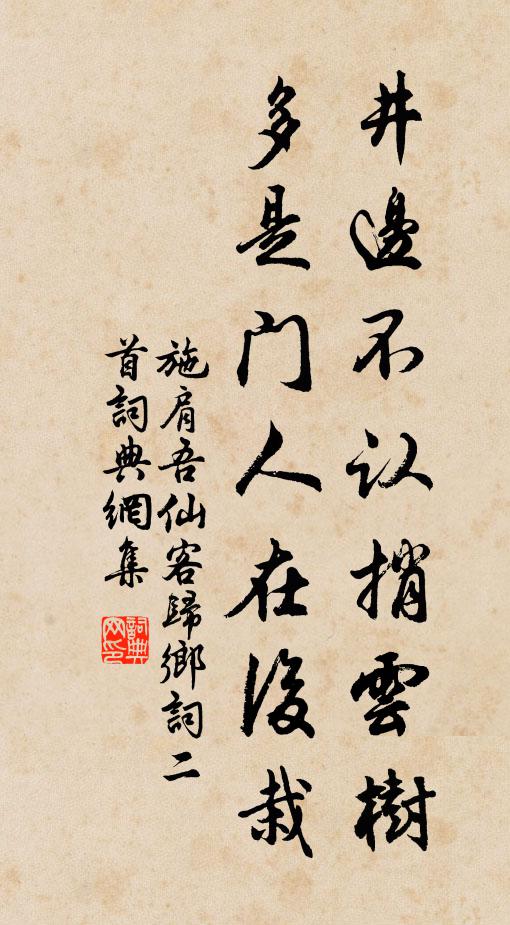 井邊不认捎雲樹
多是门人在後栽
施肩吾仙客歸鄉詞二
首詞典網集
詞典
网印